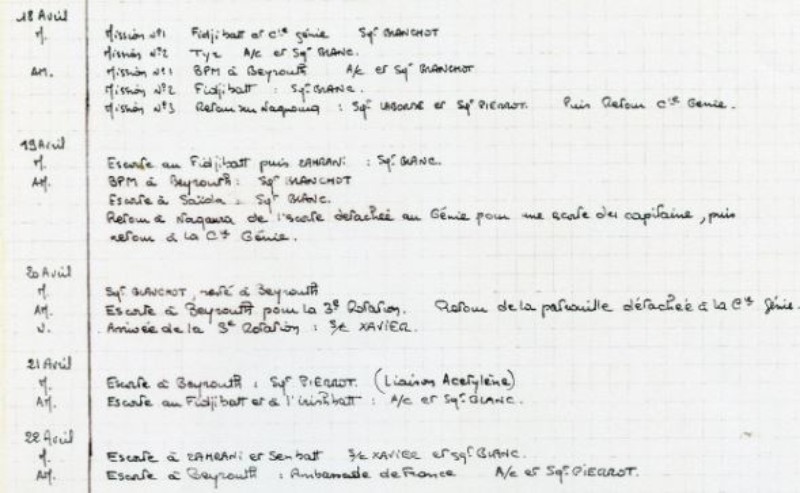 18 Avril
M. Mission n°1 Fidjibatt et Cie génie Sgt BLANCHOT
Mission n°2 Tyr A/c et Sgt BLANC.
AM. Mission n°1 BPM à Beyrouth A/c et Sgt BLANCHOT
Mission n°2 Fidjibatt : Sgt BLANC.
Mission n°3 Retour sur Naqoura : Sgt LABORDE et Sgt PIERROT. Puis Retour Cie Génie.
19 Avril
M. Escorte au Fidjibatt puis ZAHRANI : Sgt BLANC.
AM. BPM à Beyrouth : Sgt BLANCHOT
Escorte à Saïda : Sgt BLANC.
Retour à Naqoura de l'escorte détachée au Génie pour une escorte du capitaine, puis
retour à la Cie Génie.
20 Avril
M. Sgt BLANCHOT, resté à Beyrouth
AM. Escorte à Beyrouth pour la 3e Rotation. Retour de la patrouille détachée à la Cie Génie.
N. Arrivée de la 3e Rotation : S/c XAVIER.
21 Avril
M. Escorte à Beyrouth : Sgt PIERROT. (Liaison Acétylène)
AM. Escorte au Fidjibatt et à l'irishbatt : A/c et Sgt BLANC.
22 Avril
M. Escorte à ZAHRANI et Senbatt S/c XAVIER et Sgt BLANC.
AM. Escorte à Beyrouth : Ambassade de France A/c et Sgt PIERROT.